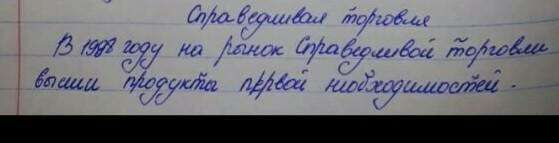 Справедливая торговля
В 1998 году на рынок Справедливой торговли
вышли продукты первой необходимостей.